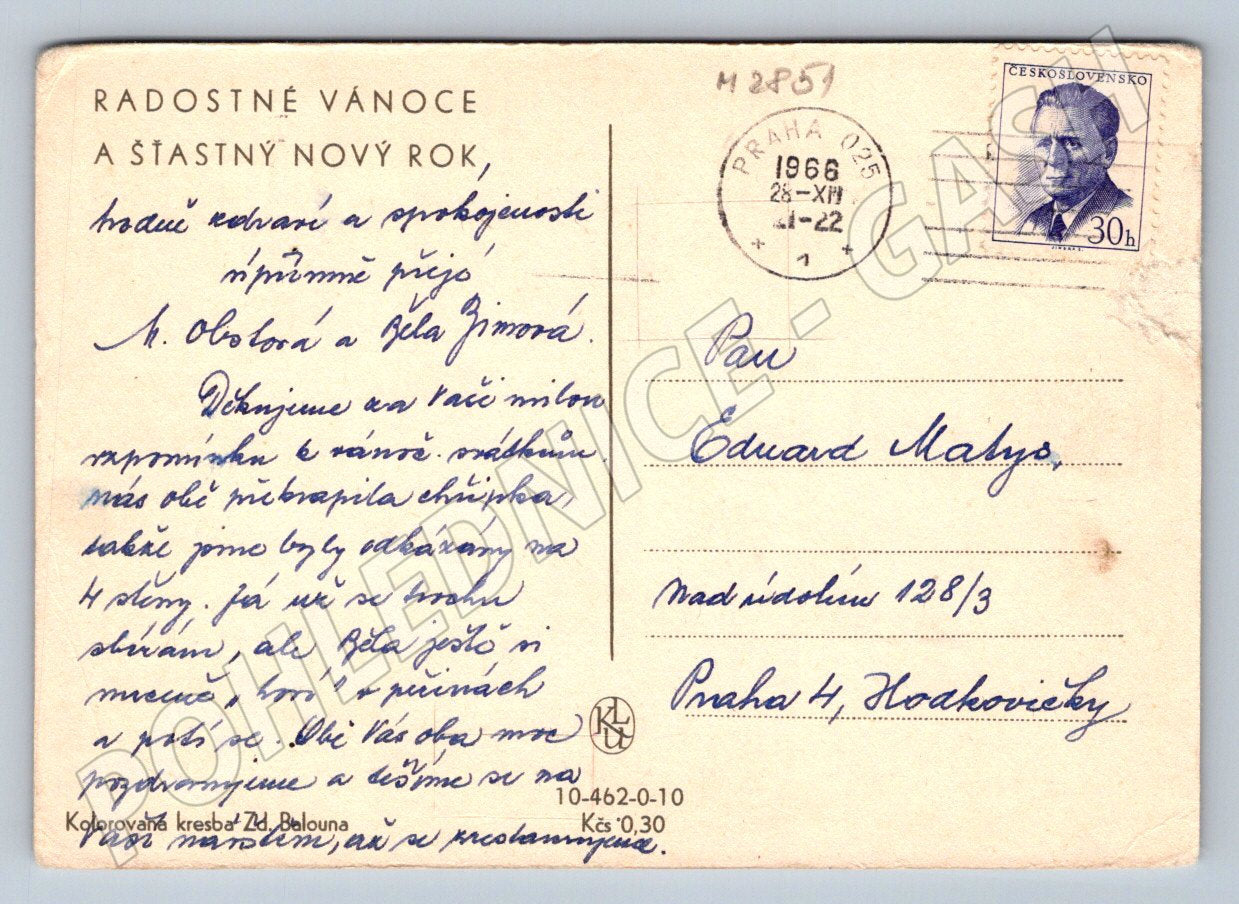 RADOSTNÉ VÁNOCE
A ŠŤASTNÝ NOVÝ ROK,
hodně zdraví a spokojenosti
upřímně přejí
M. Obstová a Běla Zimová.
Děkujeme za Vaši milou
vzpomínku k vánoč. svátkům.
nás obě překvapila chřipka,
takže jsme byly odkázány na
4 stěny. Já už se trochu
sbírám, ale Běla ještě si
mocně „hoví" v peřinách
a potí se. Obě Vás oba moc
pozdravujeme a těšíme se na
Vaši návštěvu, až se
Kolorovaná kresba Zd. Balouna
KLU
10-462-0-10
Kčs 0,30
M 2851
PRAHA 025
1966
28-XII
21-22
1
ČESKOSLOVENSKO
30h
Pan
Eduard Matys,
Nad údolím 128/3
Praha 4, Hodkovičky
POHLEDNICE - GASH